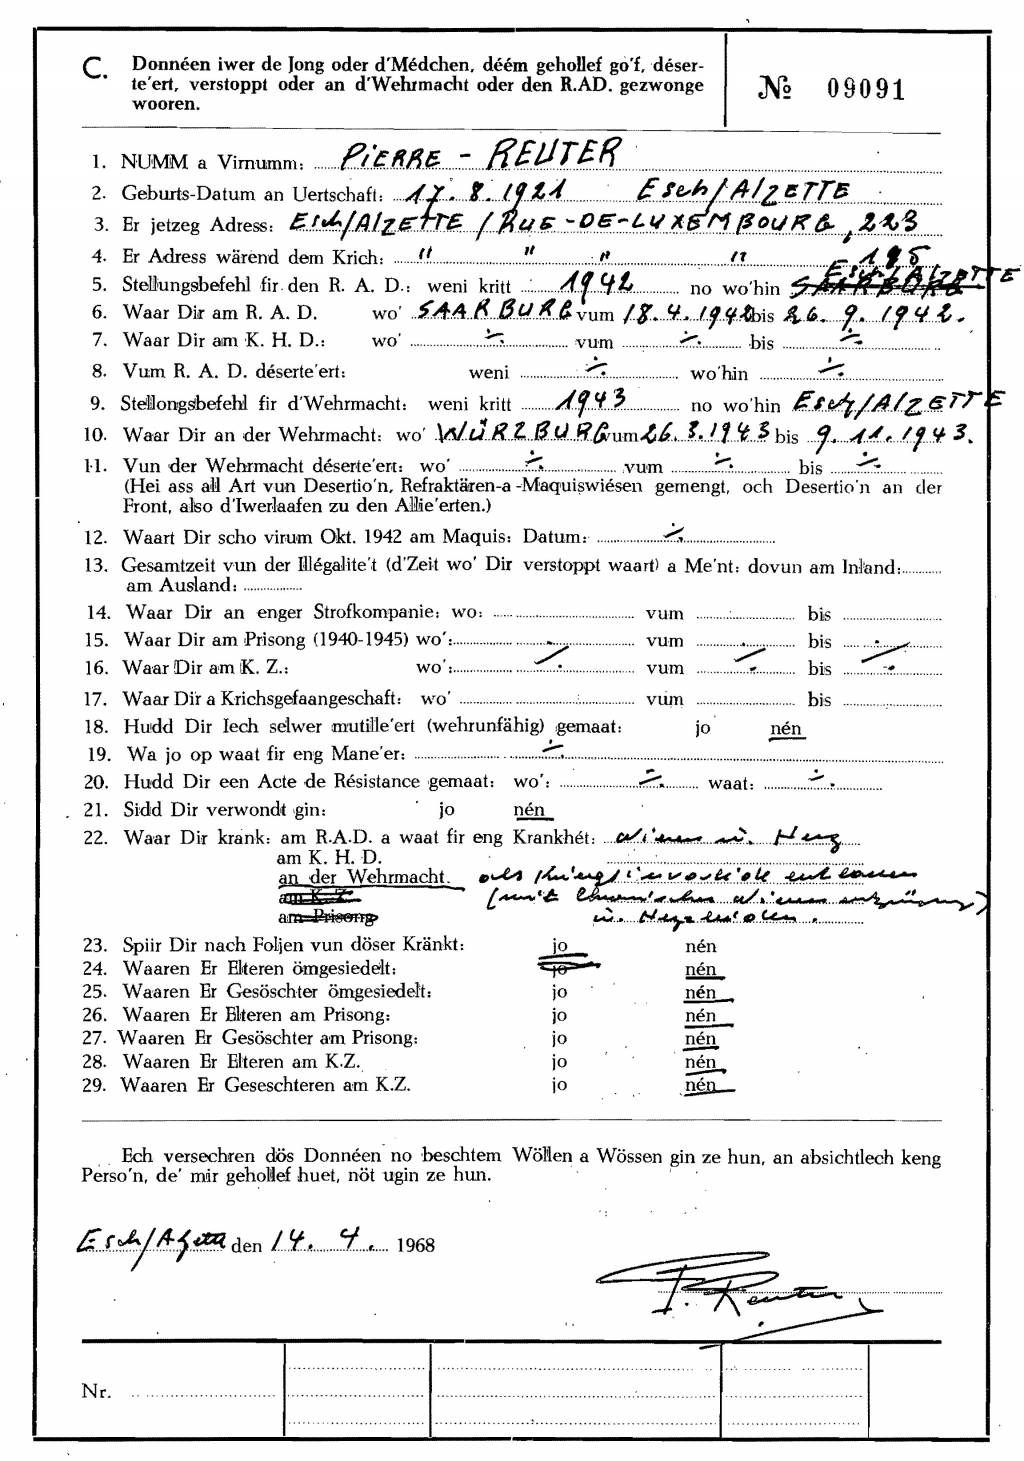 C. Donnéen iwer de Jong oder d'Médchen, déém gehollef go'f, déser-
te'ert, verstoppt oder an d'Wehrmacht oder den R.AD. gezwonge
wooren.
№ 09091
1. NUMM a Virnumm: PiERRE - REUTER
2. Geburts-Datum an Uertschaft: 17. 8. 1921 Esch/AlzETTE
3. Er jetzeg Adress: Esch/AlzETTE / RUE-DE-LUXEMBOURG, 223
4. Er Adress wärend dem Krich: " " " " 195
5. Stellungsbefehl fir den R. A. D.: weni kritt 1942 no wo'hin SAARBURG Esch/AlzETTE
6. Waar Dir am R. A. D. wo' SAARBURG vum 18.4.1942 bis 26. 9. 1942.
7. Waar Dir am K. H. D.: wo' ÷ vum ÷ bis ÷
8. Vum R. A. D. déserte'ert: weni ÷ wo'hin ÷
9. Stellongsbefehl fir d'Wehrmacht: weni kritt 1943 no wo'hin Esch/AlZETTE
10. Waar Dir an der Wehrmacht: wo' WÜRZBURG vum 26.3.1943 bis 9.11.1943.
11. Vun der Wehrmacht déserte'ert: wo' ÷ vum ÷ bis ÷
(Hei ass all Art vun Desertio'n, Refraktären-a -Maquiswiésen gemengt, och Desertio'n an der
Front, also d'Iwerlaafen zu den Allie'erten.)
12. Waart Dir scho virum Okt. 1942 am Maquis: Datum: ÷
13. Gesamtzeit vun der Illégalite't (d'Zeit wo' Dir verstoppt waart) a Me'nt: dovun am Inland:
am Ausland:
14. Waar Dir an enger Strofkompanie: wo: vum bis
15. Waar Dir am Prisong (1940-1945) wo': vum bis
16. Waar Dir am K. Z.: wo': ÷ vum ÷ bis ÷
17. Waar Dir a Krichsgefaangeschaft: wo' vum bis
18. Hudd Dir Iech selwer mutille'ert (wehrunfähig) gemaat: jo nén
19. Wa jo op waat fir eng Mane'er: ÷
20. Hudd Dir een Acte de Résistance gemaat: wo': ÷ waat: ÷
21. Sidd Dir verwondt gin: jo nén
22. Waar Dir krank: am R.A.D. a waat fir eng Krankhét: Nieren u. Herz
am K. H. D.
an der Wehrmacht. als Kriegsinvalide entlassen
am K. Z. (mit chronischer Nierenentzündung)
am Prisong u.
23. Spiir Dir nach Foljen vun döser Kränkt: jo nén
24. Waaren Er Elteren ömgesiedelt: jo nén
25. Waaren Er Gesöschter ömgesiedelt: jo nén
26. Waaren Er Elteren am Prisong: jo nén
27. Waaren Er Gesöschter am Prisong: jo nén
28. Waaren Er Elteren am K.Z. jo nén
29. Waaren Er Geseschteren am K.Z. jo nén
Ech versechren dös Donnéen no beschtem Wöllen a Wössen gin ze hun, an absichtlech keng
Perso'n, de' mir gehollef huet, nöt ugin ze hun.
Esch/Alzette den 14. 4. 1968
P. Reuter
Nr.